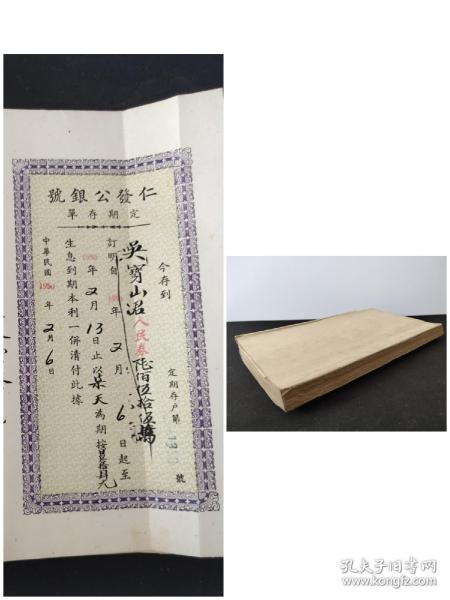 仁發公銀號
定期存單
定期存戶第 號
今存到
吳寶山君人民券陸佰伍拾伍萬
訂明自1950年2月6日起至
1950年2月13日止以柒天為期按
生息到期本利一併清付此據
中華民國1950年2月6日
孔夫子旧书网
www.kongfz.com